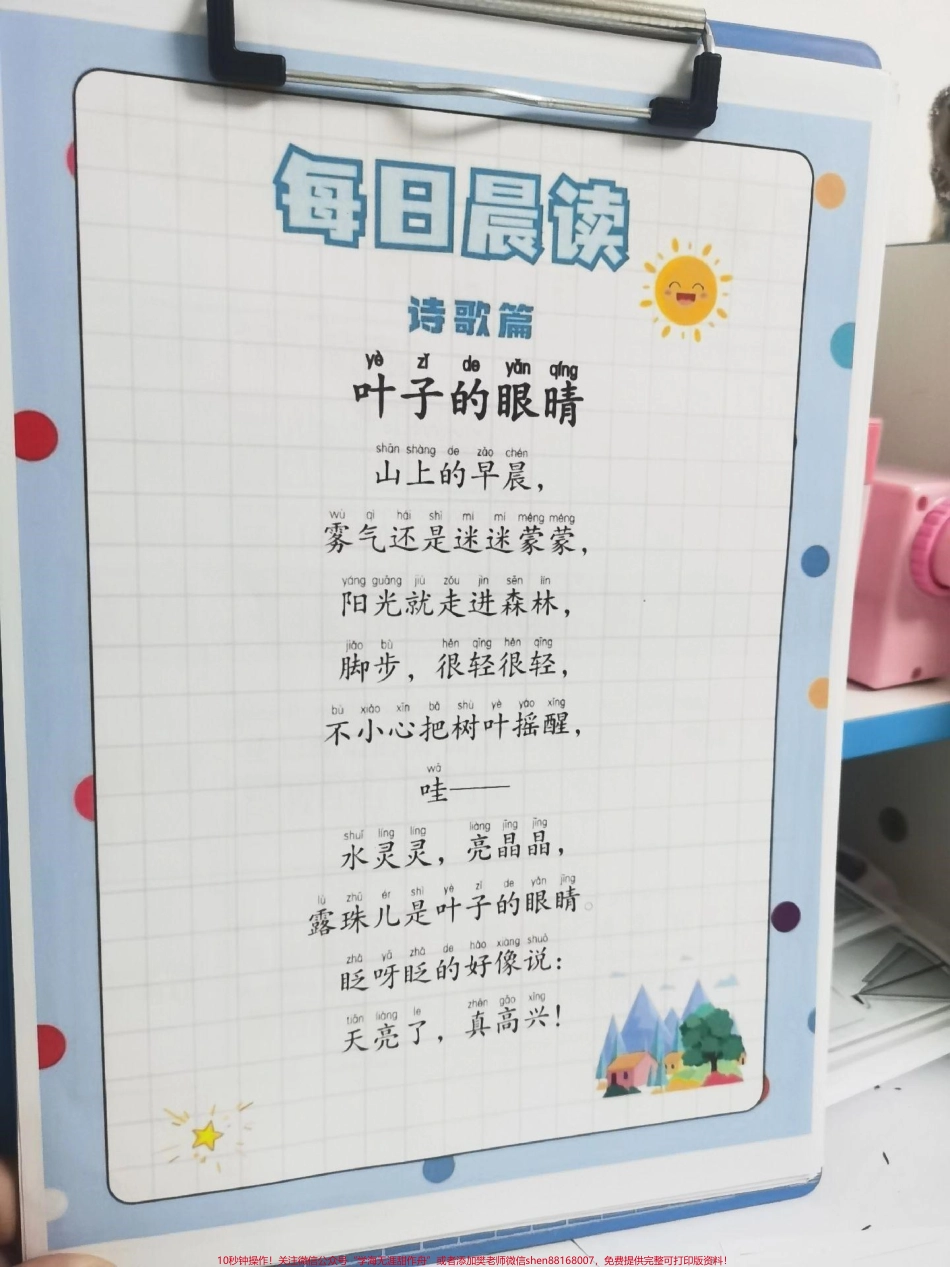 每日晨读
诗歌篇
yè zǐ de yǎn qíng
叶子的眼晴
shān shàng de zǎo chén
山上的早晨，
wù qì hái shì mí mí méng méng
雾气还是迷迷蒙蒙，
yáng guāng jiù zǒu jìn sēn lín
阳光就走进森林，
jiǎo bù hěn qīng hěn qīng
脚步，很轻很轻，
bù xiǎo xīn bǎ shù yè yáo xǐng
不小心把树叶摇醒，
wā
哇——
shuǐ líng líng liàng jīng jīng
水灵灵，亮晶晶，
lù zhū ér shì yè zi de yǎn jīng
露珠儿是叶子的眼睛。
zhǎ yā zhǎ de hǎo xiàng shuō
眨呀眨的好像说：
tiān liàng le zhēn gāo xìng
天亮了，真高兴！
10秒钟操作！关注微信公众号“学海无涯甜作舟”或者添加樊老师微信shen88168007，免费提供完整可打印版资料！